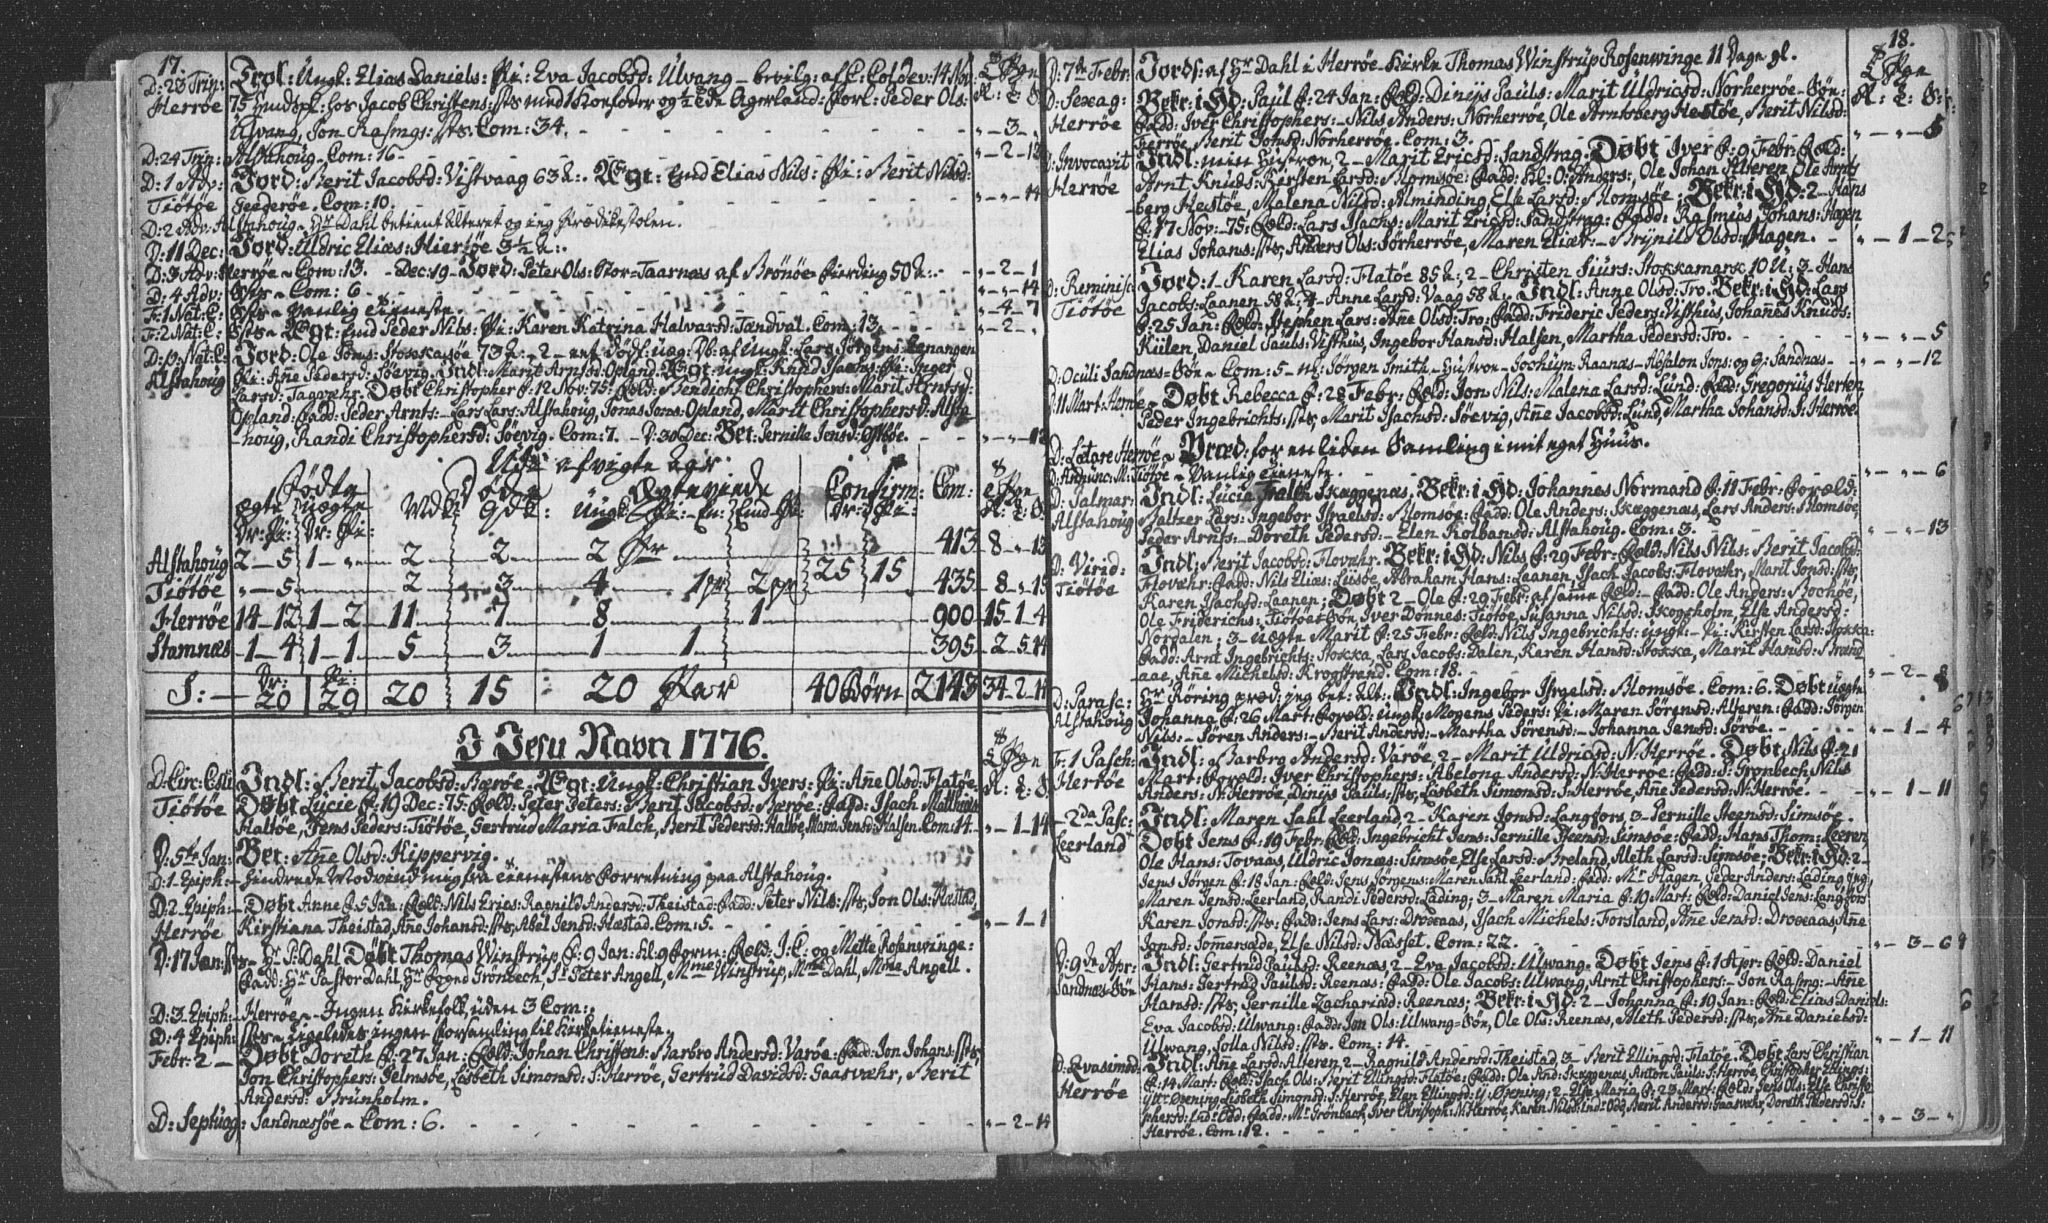 17.
D: 23 Trin: Trol: Ungk: Elias Daniels: Pi: Eva Jacobsd: Ulvang - bevilg: af C: Coldev: 14 Nov:
Herrøe 75 Huuspl: hos Jacob Christens: sts med 1 Koefoder og Agerland: Forl: Peder Ols:
Ulvang, Jon Rasmgs: sts. Com: 34. „ - 3 - „
D: 24 Trin: Alstahoug - Com: 16 - „ - 2 -
D: 1 Adv: Jord: Berit Jacobsd: Vistvaag 63 A: Ægt: Emd Elias Nils: Pi: Berit Nilsd:
Tiøtøe Geederøe. Com: 10. „ - „ - 14
D: 2 Adv: Alstahoug - Hr Dahl betient Alteret og ieg Prædikestolen.
D: 11 Dec: Jord: Uldric Elias: Hiersøe 3½ A:
D: 3 Adv: Herrøe - Com: 13. - Dec: 19 - Jord: Peter Ols: Stor-Taarnæs af Brønøe-Fierding 50 A: - „ - 2 - 1
D: 4 Adv: sts - Com: 6 „ - „ - 14
F: 1 Nat: C: sts - Vanlig Tieneste. „ - 4 - 7
F: 2 Nat: C: sts - Ægt: Emd Peder Nils: Pi: Karen Katrina Halvarsd: Tændval. Com: 13. „ - 2 - „
D: p: Nat: C: Jord: Ole Joms: Stokkasøe 73 A: - 2 - et død f: uæg: Pb: af Ungk: Lars Jørgens: Lenangen
Alstahoug Pi: Añe Pedersd: Søevig. Indl: Marit Arntsd: Opland. Ægt: Ungk: Knud Isachs: Pi: Inger
Larsd: Tagvæhr. Døbt Christopher f: 12 Nov: 75: Feld: Bendict Christophers: Marit Arntsd:
Opland: Fadd: Peder Arnts: - Lars Lars: Alstahoug, Jonas Jons: Opland, Marit Christophersd: Alsta-
houg, Randi Christophersd: Søevig. Com: 7. - D: 30 Dec: Bet: Pernille Jensd: „ - „ - 12
Udi afvigte Aar
Fødte Døde Ægteviede Confirm: Com:
ægte uægte
Dr: Pi: Dr: Pi: Mdk: Qdk: Ungk: Pi: - En: Emd: Pi: Dr: Pi:
Alstahoug 2 - 5 1 - „ 2 2 2 Pr 413 8 - „ - 13
Tiøtøe „ - 5 2 3 4 1 pr 2 pr 25 15 435 - 8 - „ - 15
Herrøe 14 - 12 1 - 2 11 7 8 1 900 15 - 1 - 4
Stamnæs 1 - 4 1 - 1 5 3 1 1 395 - 2 - 5 - 14
S: - Dr: 20 Pi: 29 20 15 20 Par 40 Børn 2143 34 - 2 - 14
I Jesu Navn 1776.
D: Circ: Csti Indl: Berit Jacobsd: Bærøe. Ægt: Ungk: Christian Ivers: Pi: Añe Olsd: Flatøe.
Tiøtøe Døbt Lucie f: 19 Dec: 75: Feld: Peter Peters: Berit Jacobsd: Bærøe: Fadd: Isach Matthias:
Haltøe, Jens Peders: Tiøtøe, Gertrud Maria Falck, Berit Pedersd: Haltøe, Maria Jensd: Halsen. Com: 14. „ - 1 - 14
D: 5te Jan: Bet: Añe Olsd: Kippervig.
D: 1 Epiph: - Hindrede Modvend mig fra Tienestens Forretning paa Alstahoug.
D: 2 Epiph: - Døbt Anne f: 5 Jan: Feld: Nils Erics: Ragnild Andersd: Theistad: Fadd: Peter Nils: sts, Jon Ols: Hæstad,
Herrøe Kirstiana Theistad, Añe Johansd: sts, Abel Jensd: Hæstad. Com: 5. „ - 1 - 1
D: 17 Jan: sts - Hr P: Dahl Døbt Thomas Winstrup f: 9 Jan: kl: 9 form: Feld: J: C: og Mette Rosenwinge:
Fadd: Hr Pastor Dahl, Hr Fogend Grønbech, Sr Peter Angell, Mme Winstrup, Mme Dahl, Mme Angell.
D: 3 Epiph: - Herrøe - Ingen Kirkefolk, uden 3 Com:
D: 4 Epiph: sts - Ligeledes ingen Forsamling til Kirketieneste.
Febr: 2 - Døbt Doreth f: 27 Jan: Feld: Johan Christens: Barbro Andersd: Varøe: Fadd: Jon Johans: sts,
Jon Christophers: Gelmsøe, Lisbeth Simonsd: S: Herrøe, Gertrud Davidsd: Gaasvæhr, Berit
Andersd: Brunholm.
D: Septuag: Sandnæsøe - Com: 6. „ - 2 - 14
18.
D: 7de Febr: Jords: af Hr Dahl i Herrøe Kirke Thomas Winstrup Rosenwinge 11 Dage gl.
D: Sexag: Bekr: i HD: Paul f: 24 Jan: Feld: Dinijs Pauls: Marit Uldricsd: Norherrøe - Søn:
Herrøe Fadd: Iver Christophers: - Nils Anders: Norherrøe, Ole Arntsberg Hestøe, Berit Nilsd:
Herrøe, Berit Jonsd: Norherrøe. Com: 3. „ - „ - 5
D: Invocavit Indl: min Hustroe, 2 - Marit Ericsd: Sandstrag. Døbt Iver f: 9 Febr: Feld:
Herrøe Arnt Knuds: Kirsten Larsd: Blomsøe: Fadd: Kl: O: Anders:, Ole Johan Alteren, Ole Arnts-
berg Hestøe, Malena Nilsd: Alminding, Else Larsd: Blomsøe; Bekr: i HD: 2 - Hans
f: 17 Nov: 75: Feld: Lars Isachs: Marit Ericsd: Sandstrag: Fadd: Rasmus Johans: Hagen
Elias Johans: sts, Anders Ols: Sørherrøe, Maren Eliæ: - Brynild Olsd: Hagen. „ - 1 - 2
D: Reminisc: Jord: 1 - Karen Larsd: Flatøe 85 A:, 2 - Christen Siurs: Stokkamark 10 U:, 3 - Hans
Tiøtøe Jacobs: Laanen 58 A:, 4 - Anne Larsd: Vaag 58 A:. Indl: Anne Olsd: Tro. Bekr: i HD: Lars
f: 25 Jan: Feld: Stephen Lars: Añe Olsd: Tro: Fadd: Frideric Peders: Visthus, Johanes Knuds:
Kiilen, Daniel Pauls: Visthus, Ingebor Hansd: Halsen, Martha Pedersd: Tro. „ - „ - 5
D: Oculi Sandnæs-Søn - Com: 5 - nl: Jørgen Smith - Hustroe - Jochum Raanæs - Absalon Jons: og Q: Sandnæs - „ - „ - 12
D: 11 Mart: Herrøe - Døbt Rebecca f: 28 Febr: Feld: Jon Nils: Malena Larsd: Lund: Fadd: Gregorius Herten,
Peder Ingebrichts: sts, Marit Isachsd: Søevig, Añe Jacobsd: Lund, Martha Johansd: S: Herrøe.
D: Lætare Herrøe - Præd: for en liden Samling i mit eget Huus.
D: Añunc: M: Tiøtøe - Vanlig Tieneste. „ - „ - 6
D: Palmar: Indl: Lucia Falch Skæggenæs. Bekr: i HD: Johannes Normand f: 11 Febr: Foræld:
Alstahoug Baltzer Lars: Ingebor Israelsd: Blomsøe: Fadd: Ole Anders: Skæggenæs, Lars Anders: Blomsøe
Peder Arnts: - Doreth Pedersd: - Elen Kolbansd: Alstahoug. Com: 3. „ - „ - 13
D: Virid: Indl: Berit Jacobsd: Flovæhr. Bekr: i HD: Nils f: 29 Febr: Feld: Nils Nils: Berit Jacobsd:
Tiøtøe Flovæhr: Fadd: Nils Elias: Luusøe, Abraham Hans: Laanen, Isach Jacobs: Flovæhr, Marit Jonsd: sts,
Karen Isachsd: Laanen; Døbt 2 - Ole f: 29 Febr: af same Feld: - Fadd: Ole Anders: Bochøe,
Ole Friderichs: Tiøtøe-Søn, Iver Dønnes: Tiøtøe, Susanna Nilsd: Skogsholm, Else Andersd:
Nordalen; 3 - uægte Marit f: 25 Febr: Feld: Nils Ingebrichts: Ungk: - Pi: Kirsten Larsd: Stokka:
Fadd: Arnt Ingebrichts: Stokka, Lars Jacobs: Dalen, Karen Hansd: Stokka, Marit Hansd: Strand
aae, Añe Michelsd: Krogstrand. Com: 18. „ - 2 - 8
D: Parasc: Hr Røring præd: jeg bet: Alt: Indl: Ingebor Isrælsd: Blomsøe. Com: 6. Døbt uægte
Alstahoug Johanna f: 26 Mart: Foræld: Ungk: Mogens Peders: Pi: Maren Sørensd: Alteren: Fadd: Jørgen
Nils: - Søren Anders: - Berit Andersd: - Martha Sørensd: - Johanna Jensd: Sørøe. „ - 1 - 4
F: 1 Pasch: Indl: Barbro Andersd: Varøe, 2 - Marit Uldricsd: N: Herrøe. Døbt Nils f: 21
Herrøe Mart: Foræld: Iver Christophers: Abelong Andersd: N: Herrøe: Fadd: S: Grønbech, Nils
Anders: N: Herrøe, Dinijs Pauls: sts, Lisbeth Simonsd: S: Herrøe, Añe Pedersd: N: Herrøe. „ - 1 - 11
- 2da Pasc: Indl: Maren Sahl Leerland, 2 - Karen Jonsd: Langfors, 3 - Pernille Steensd: Simsøe.
Leerland Døbt Jens f: 19 Febr: Feld: Ingebricht Jens: Pernille Steensd: Simsøe: Fadd: Hans Thom: Leeren,
Ole Hans: Tovaas, Uldric Jonæs: Simsøe, Else Larsd: Breland, Aleth Larsd: Simsøe; Bekr: i HD: 2 -
Jens Jørgen f: 18 Jan: Feld: Jens Jørgens: Maren Sahl Leerland: Fadd: Mr Hagen, Peder Anders: Lading, Jfr
Maren Jensd: Leerland, Randi Pedersd: Lading; 3 - Maren Maria f: 19 Mart: Feld: Daniel Jens: Langfors
Karen Jonsd: sts: Fadd: Jens Lars: Drovaas, Isach Michels: Forsland, Añe Jensd: Drovaas, Añe
Jonsd: Somersæde, Else Nilsd: Næsset. Com: 22. „ - 3 - 6
D: 9de Apr: Indl: Gertrud Paulsd: Reenæs, 2 - Eva Jacobsd: Ulwang. Døbt Jens f: 1 Apr: Feld: Daniel
Sandnæs-Søn Hans: Gertrud Paulsd: Reenæs: Fadd: Ole Jacobs: Ulwang, Arnt Christophers: - Jon Rasmg: - Añe
Hansd: sts, Pernille Zachariæd: Reenæs; Bekr: i HD: 2 - Johanna f: 19 Jan: Feld: Elias Daniels:
Eva Jacobsd: Ulwang: Fadd: Jon Ols: Ulwang-Søn, Ole Ols: Reenæs, Aleth Pedersd: sts, Añe Danielsd:
Ulwang, Solla Nilsd: sts. Com: 14. „ - 1 - 11
D: Qvasimod: Indl: Añe Larsd: Alteren, 2 - Ragnild Andersd: Theistad, 3 - Berit Ellingsd: Flatøe. Døbt Lars Christian
Herrøe f: 14 Mart: Feld: Isach Ols: Berit Ellingsd: Flatøe: Fadd: Ole And: Skæggenæs, Anton Pauls: S: Herrøe, Christopher Ellings:
Ytr: Ørening, Lisbeth Simonsd: S: Herrøe, Elen Ellingsd: Y: Ørening; 2 - Else Maria f: 23 Mart: Feld: Jens Ols: Else Christo-
phersd: Indr: Odd: Fadd: Mr Grønbech, Iver Christoph: N: Herrøe, Karen Nilsd: Ind: Odd, Berit Andersd: Gaasvæhr, Doreth Pedersd: S:
Herrøe. Com: 12. „ - 3 - „